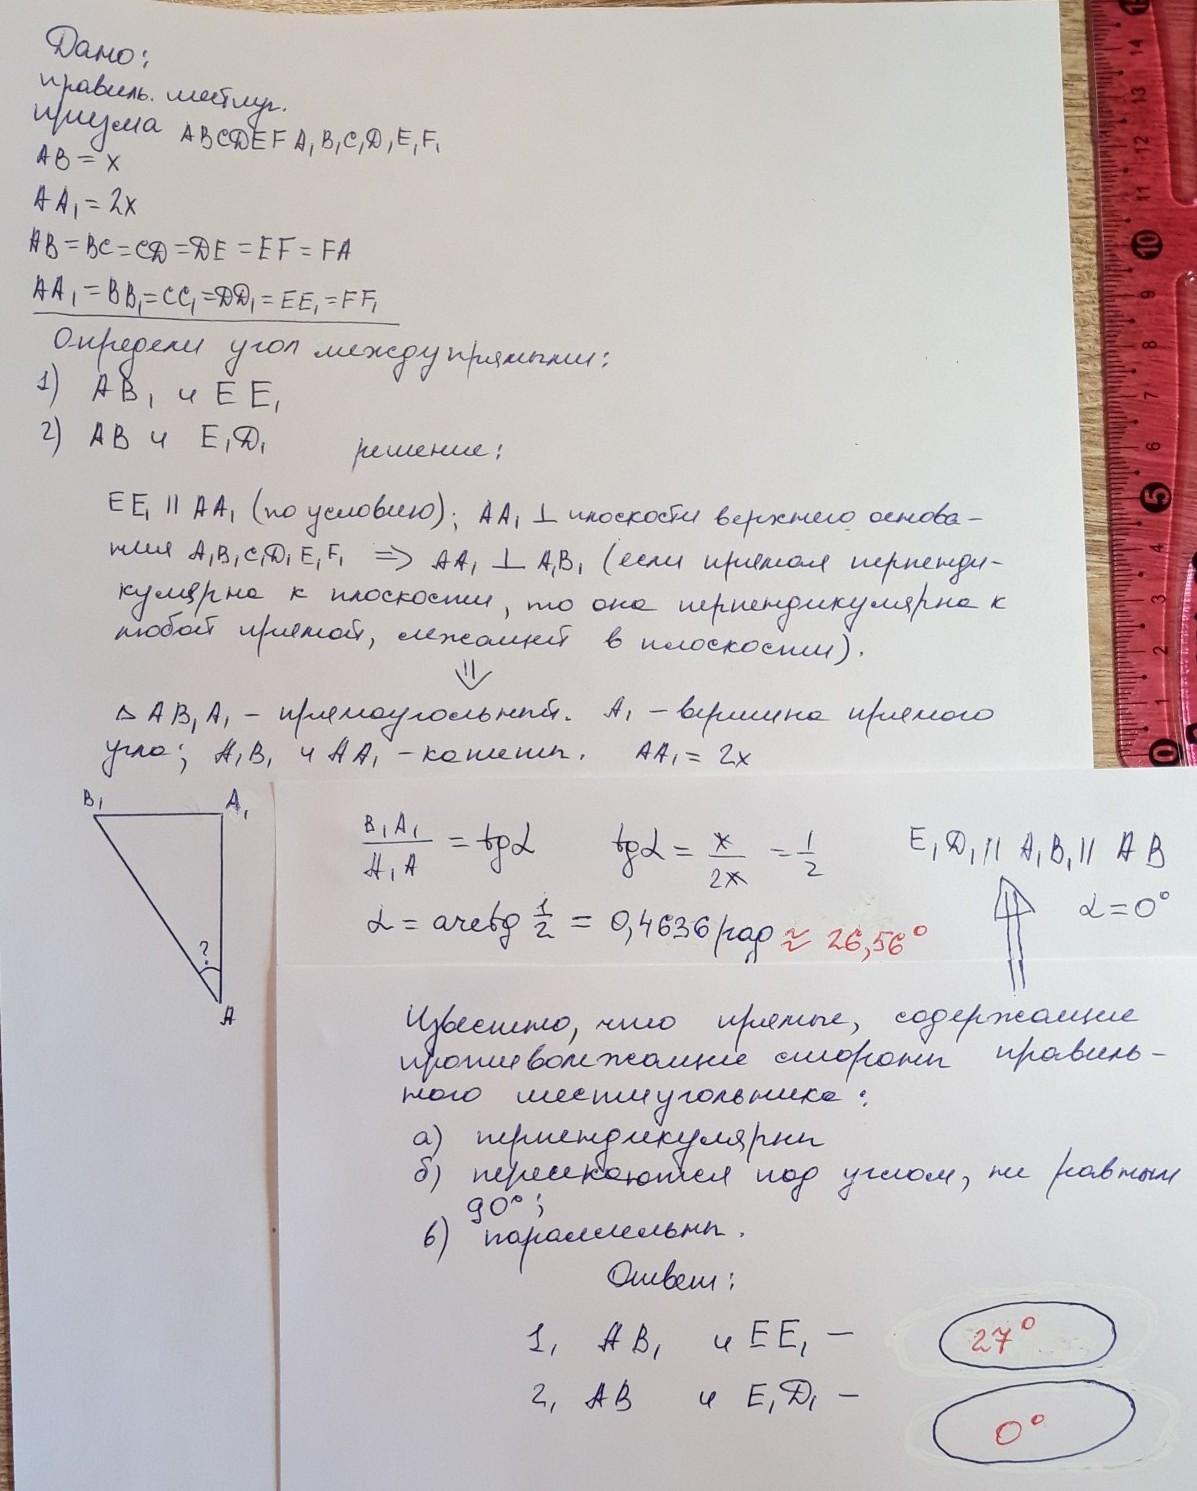 Дано:
правиль. шестиуг.
призма ABCDEFA₁B₁C₁D₁E₁F₁
AB = x
AA₁ = 2x
AB = BC = CD = DE = EF = FA
AA₁ = BB₁ = CC₁ = DD₁ = EE₁ = FF₁
Определи угол между прямыми:
1) AB₁ и EE₁
2) AB и E₁D₁
решение:
EE₁ || AA₁ (по условию); AA₁ ⊥ плоскости верхнего основа-
ния A₁B₁C₁D₁E₁F₁ ⇒ AA₁ ⊥ A₁B₁ (если прямая перпенди-
кулярна к плоскости, то она перпендикулярна к
любой прямой, лежащей в плоскости).
⇓
△ AB₁A₁ – прямоугольный. A₁ – вершина прямого
угла; A₁B₁ и AA₁ – катеты. AA₁ = 2x
B₁ A₁
?
A
B₁A₁/A₁A = tgα tgα = x/2x = 1/2
α = arctg 1/2 = 0,4636 рад ≈ 26,56°
E₁D₁ || A₁B₁ || AB
⇑ α = 0°
Известно, что прямые, содержащие
противолежащие стороны правиль-
ного шестиугольника:
а) перпендикулярны
б) пересекаются под углом, не равным
90°;
в) параллельны.
Ответ:
1, AB₁ и EE₁ – 27°
2, AB и E₁D₁ – 0°
15
14
13
12
11
10
9
8
7
6
5
4
3
2
1
0